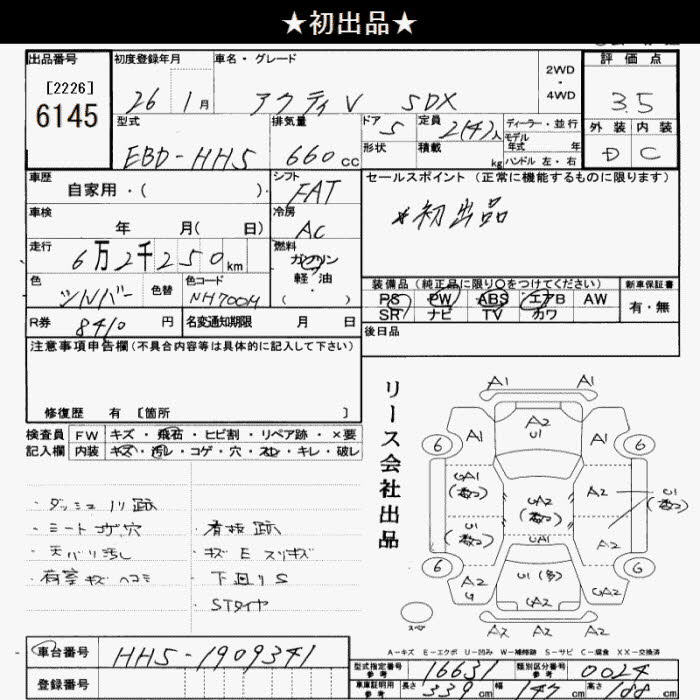 ★初出品★
出品番号
[2226]
6145
初度登録年月
26 1月
車名・グレード
アクティV SDX
2WD
・
4WD
評価点
3.5
外装 内装
D C
型式
EBD-HH5
排気量
660cc
ドア 5
定員 2(4)人
ディーラー・並行
モデル
年式 年
形状
積載 kg
ハンドル 左・右
車歴
自家用・( )
シフト
FAT
セールスポイント(正常に機能するものに限ります)
*初出品
車検
年 月( 日)
冷房
AC
走行
6万2千250km
燃料
ガソリン
軽油
・
( )
色
シルバー
色替
色コード
NH700M
装備品(純正品に限り○をつけてください)
PS PW ABS エアB AW
SR ナビ TV カワ
新車保証書
有・無
R券
8410円
名変通知期限 月 日
後日品
注意事項申告欄(不具合内容等は具体的に記入して下さい)
修復歴 有 [箇所 ]
検査員
記入欄
FW キズ・飛石・ヒビ割・リペア跡・×要
内装 キズ・汚レ・コゲ・穴・スレ・キレ・破レ
・ダッシュノリ跡
・シートコゲ穴
・天バリ汚レ
・荷室キズヘコミ
・看板跡
・キズEスリキズ
・下回リS
・STタイヤ
リース会社出品
A1 A1
6 A1 A2 U1 A1 6
UA1 (数コ) UA2 (数コ) A2 U1 (数コ)
U1 (数コ) UA1 A2
6 A2 U1(多) UA2 6
UA2
A2 A2 A2
スペア
A-キズ E-エクボ U-凹み W-補修跡 S-サビ C-腐食 XX-交換済
車台番号
HH5-1909341
登録番号
型式指定番号
参考
16631
類別区分番号
参考
0024
車庫証明用
参考
長さ 339cm
幅 147cm
高さ 188cm